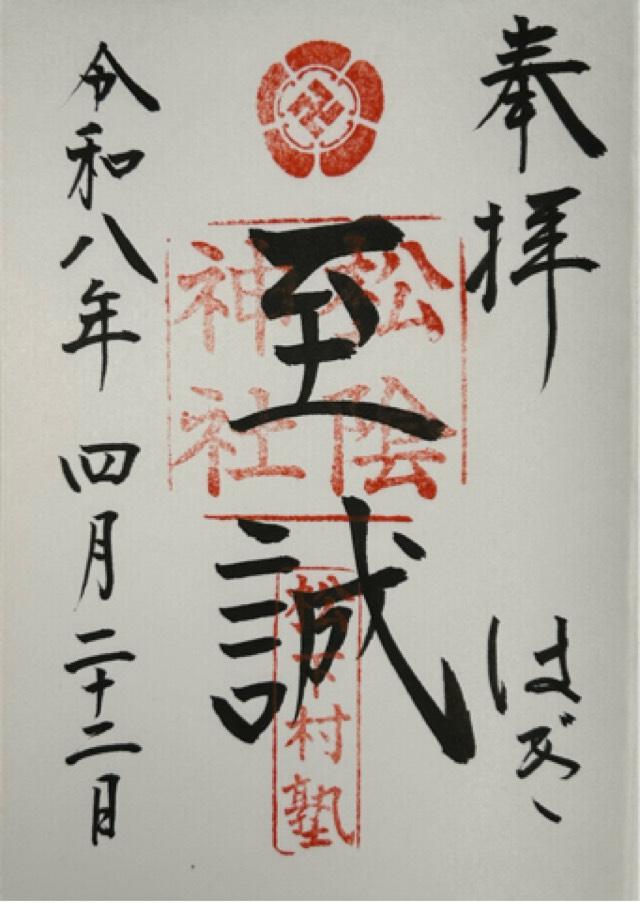 奉拝
はぎ
至誠
松陰
神社
松下村塾
令和八年 四月二十二日